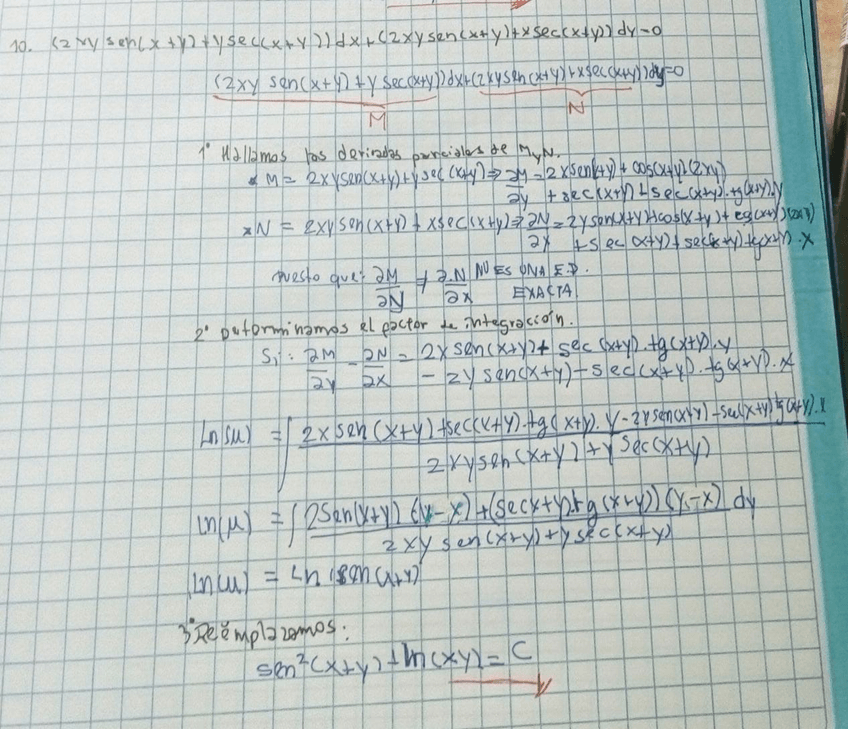 10. (2xy sen(x+y)+y sec(x+y))dx+(2xy sen(x+y)+x sec(x+y))dy=0
(2xy sen(x+y)+y sec(x+y))dx+(2xy sen(x+y)+x sec(x+y))dy=0
M N
1° Hallamos las derivadas parciales de M y N.
* M = 2xy sen(x+y)+y sec(x+y) ⇒ ∂M/∂y = 2x sen(x+y)+cos(x+y)(2xy)
+ sec(x+y)+sec(x+y).tg(x+y).y
* N = 2xy sen(x+y)+x sec(x+y) ⇒ ∂N/∂x = 2y sen(x+y)+cos(x+y)+ (2xy)
+ sec(x+y)+sec(x+y)tg(x+y).x
Puesto que: ∂M/∂N ≠ ∂N/∂x NO ES UNA E.D.
EXACTA.
2° Determinamos el factor de integración.
Si: ∂M/∂y - ∂N/∂x = 2x sen(x+y)+ sec(x+y).tg(x+y).y
- 2y sen(x+y)-sec(x+y).tg(x+y).x
Ln(u) = ∫ 2x sen(x+y)+sec(x+y).tg(x+y).y-2y sen(x+y)-sec(x+y)tg(x+y).x
2xy sen(x+y)+y sec(x+y)
ln(μ) = ∫ 2sen(x+y)(y-x)+(sec(x+y)tg(x+y))(y-x) dy
2xy sen(x+y)+y sec(x+y)
ln(u) = Ln sen(x+y)
3° Reemplazamos:
sen²(x+y)+ln(xy)=C